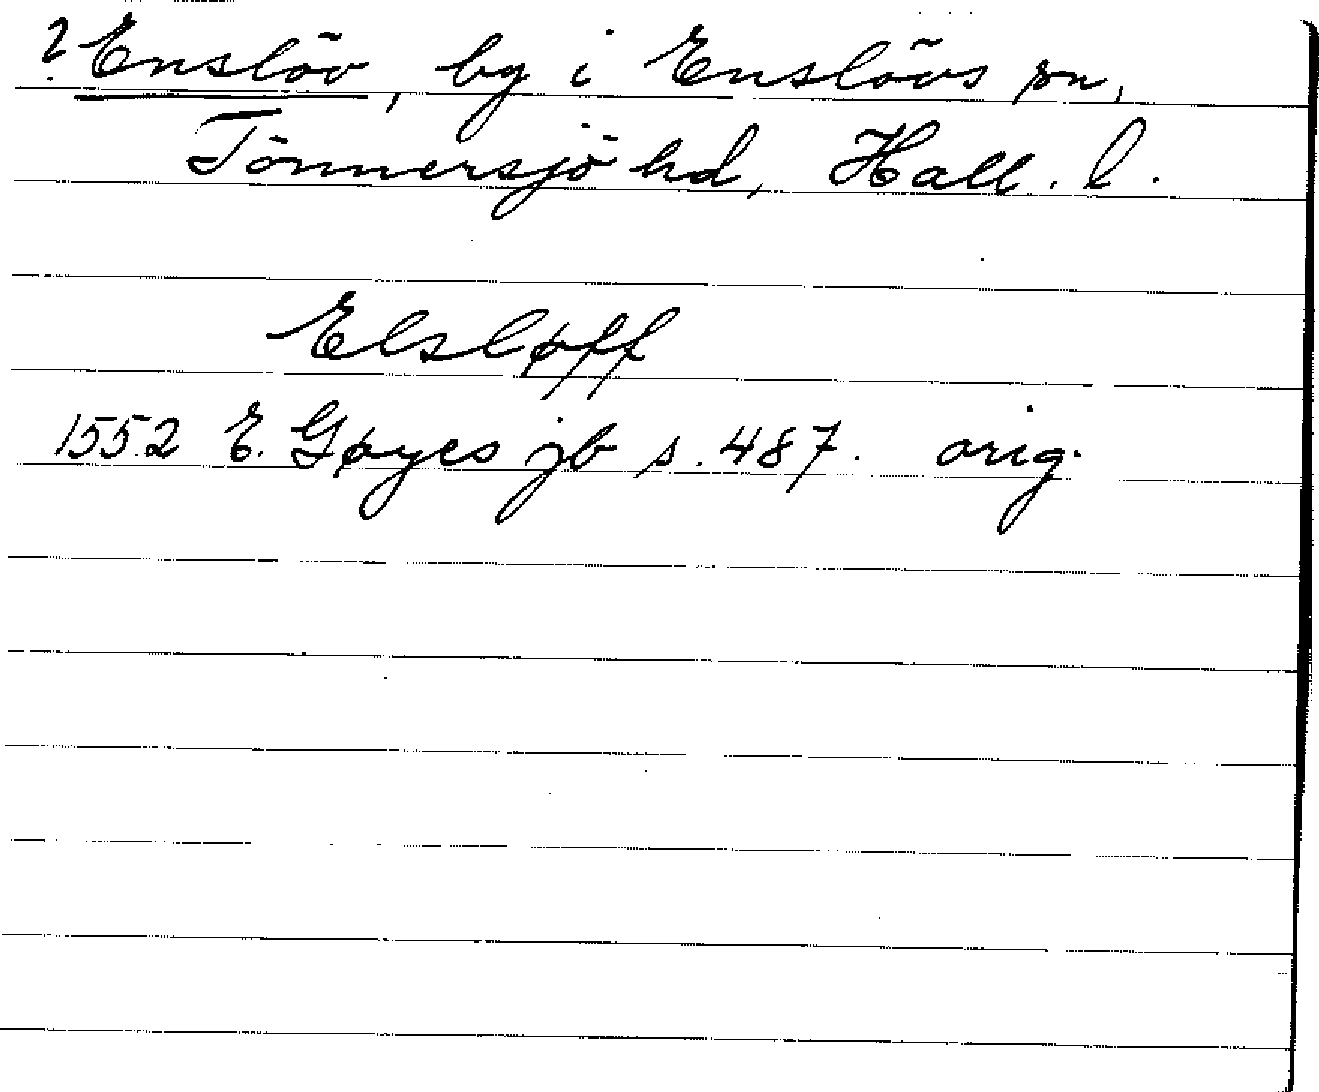 ? Enslöv, by i Enslövs sn,
Tönnersjö hd, Hall. l.
Elsløff
1552 E. Gøyes jb s. 487. orig.